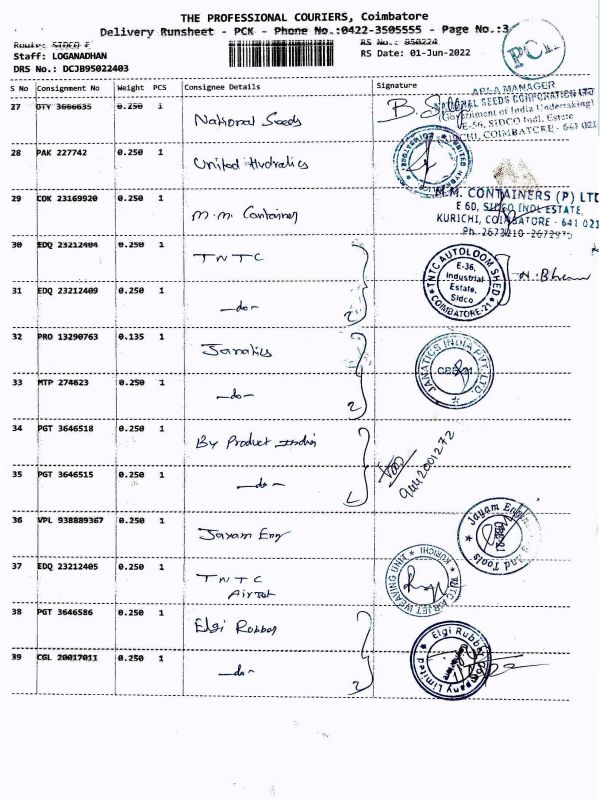 THE PROFESSIONAL COURIERS, Coimbatore
Delivery Runsheet - PCK - Phone No.:0422-3505555 - Page No.:3
Route: SIDCO E
RS No.: 950224
PCK
Staff: LOGANADHAN
RS Date: 01-Jun-2022
DRS No.: DCJB95022403
S No Consignment No Weight PCS Consignee Details Signature
27 OTY 3666635 0.250 1 National Seeds
AREA MANAGER
NATIONAL SEEDS CORPORATION LTD
(Government of India Undertaking)
E-56, SIDCO Indl. Estate
COIMBATORE - 641 021
28 PAK 227742 0.250 1 United Hydralics
29 COK 23169920 0.250 1 M.M. Container
M.M. CONTAINERS (P) LTD
E 60, SIDCO INDL ESTATE,
KURICHI, COIMBATORE - 641 021
30 EDQ 23212404 0.250 1 TNTC
TNTC AUTOLOOM SHED
E-36,
Industrial
Estate,
Sidco
COIMBATORE-21
31 EDQ 23212409 0.250 1 —do— 2
32 PRO 13290763 0.135 1 Janatics
JANATICS INDIA PVT. LTD.
33 MTP 274623 0.250 1 —do— 2
34 PGT 3646518 0.250 1 By Product India
9442001272
35 PGT 3646515 0.250 1 —do—
36 VPL 938889367 0.250 1 Jayam Eng
Jayam And Tools
37 EDQ 23212405 0.250 1 TNTC
Airjet
TNTC AIRJET WEAVING UNIT KURICHI
38 PGT 3646586 0.250 1 Elgi Rubber
Elgi Rubber Company Limited
39 CGL 20017011 0.250 1 —do— 2